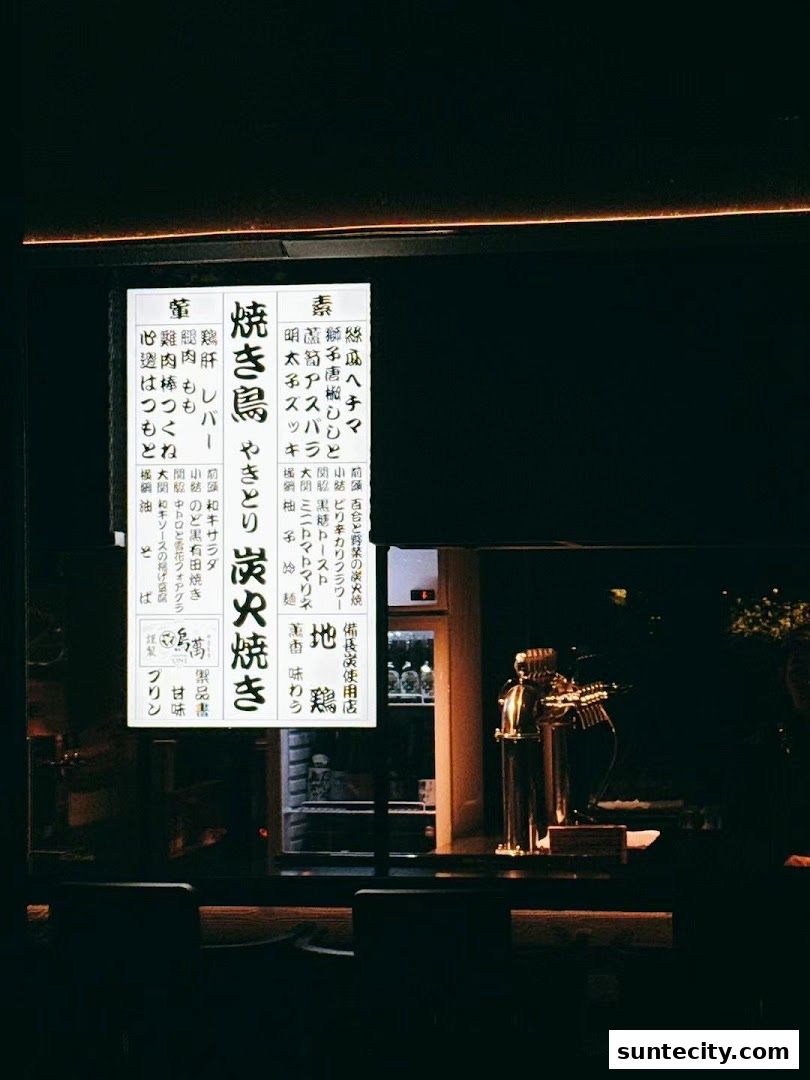 素
絲瓜ヘチマ
獅子唐椒ししと
蘆筍アスパラ
明太子ズッキ
前頭 百合と野菜の炭火焼
小結 ピリ辛カリフラワー
関脇 黒糖トースト
大関 ミニトマトマリネ
横綱 柚子冷麺
備長炭使用店
地鶏
萬香 味わう
焼き鳥 やきとり 炭火焼き
葷
鶏肝 レバー
腿肉 もも
雞肉棒つくね
心頭はつもと
前頭 和牛サラダ
小結 のど黒有田焼き
関脇 中トロと雪花フォアグラ
大関 和牛ソースの揚げ豆腐
横綱 油そば
鳥萬
謹製
御品書
甘味
プリン
suntecity.com